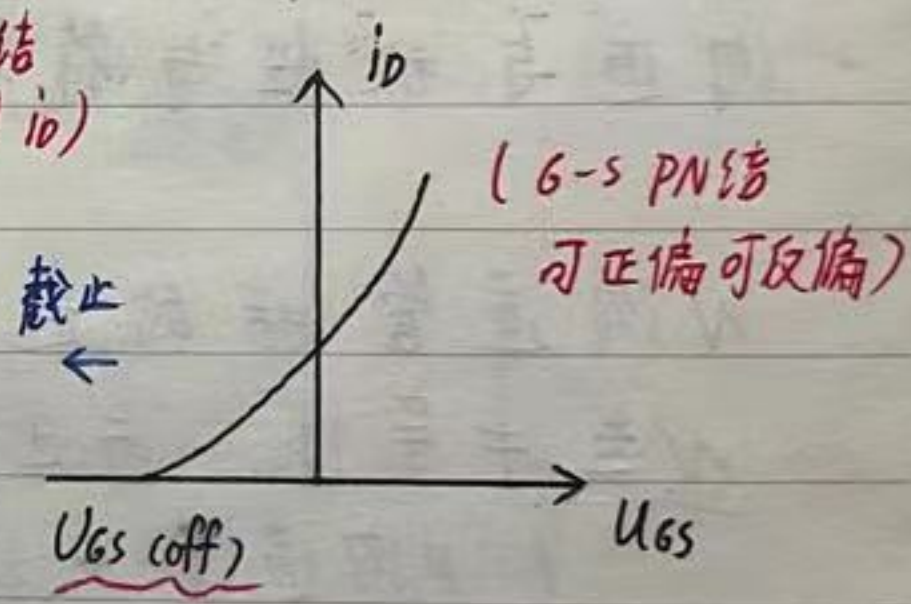 结
iD)
iD
( G-S PN结
可正偏可反偏)
截止
←
UGS (off)
UGS